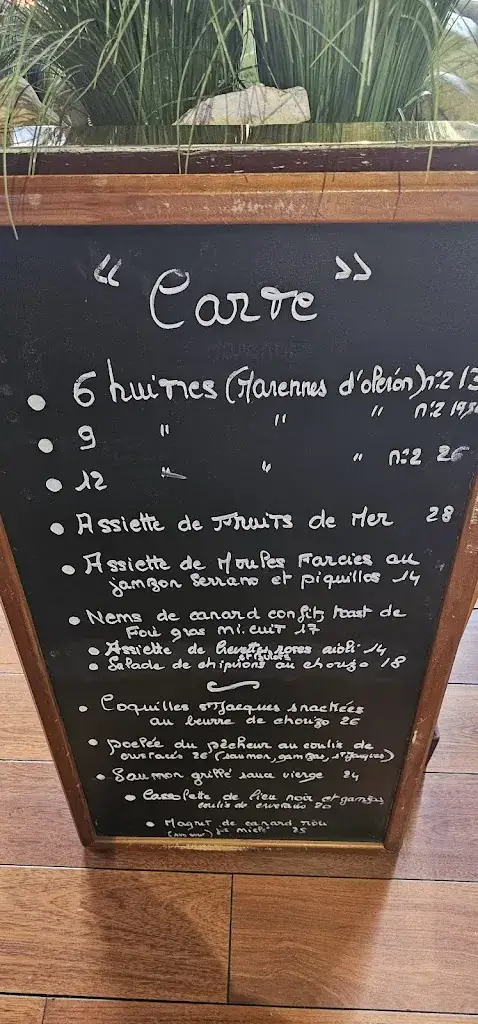 " Carte "
• 6 huitres (Marennes d'oléron) n:2 13
• 9 " " " n:2 19,50
• 12 " " " n:2 26
• Assiette de Fruits de Mer 28
• Assiette de Moules Farcies au
jambon Serrano et piquillos 14
• Nems de canard confit, toast de
Foie gras mi.cuit 17
• Assiette de crevettes roses aioli 14
et bulots
• Salade de chipirons au chorizo 18
• Coquilles St Jacques snackées
au beurre de chorizo 26
• poelée du pêcheur au coulis de
crustacés 26 (saumon, gambas, St Jacques)
• Saumon grillé sauce vierge 24
• Cassolette de lieu noir et gambas
coulis de crustacés 20
• Magret de canard rôti
jus miel 25